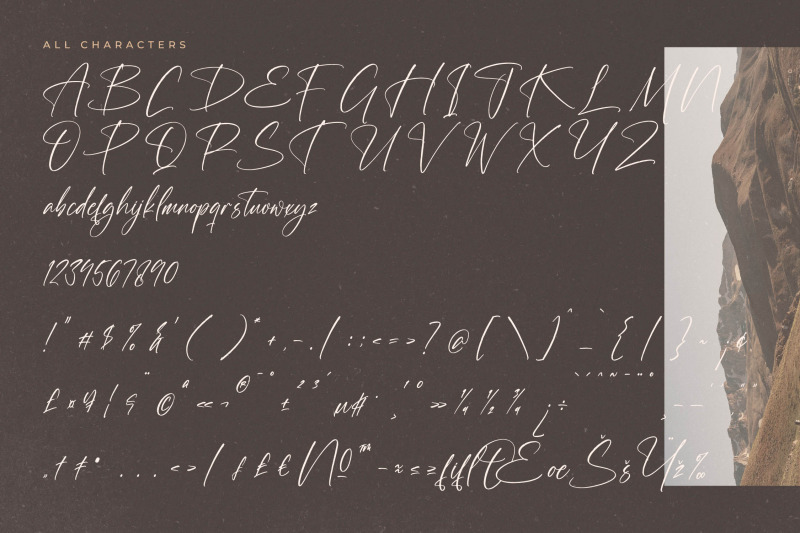 ALL CHARACTERS
ABCDEFGHIJKLMN
OPQRSTUVWXYZ
abcdefghijklmnopqrstuvwxyz
1234567890
! " # $ % & ' ( ) * + , - . / : ; < = > ? @ [ \ ] ^ _ ` { | } ~ ¡ ¢
£ ¤ ¥ ¦ § ¨ © ª « ¬ ® ¯ ° ± ² ³ ´ µ ¶ · ¸ ¹ º » ¼ ½ ¾ ¿ ÷
„ † ‡ • . . . < > / ƒ £ € № ™ − ≈ ≤ ≥ fi fl Œ œ Š š Ÿ ž ‰